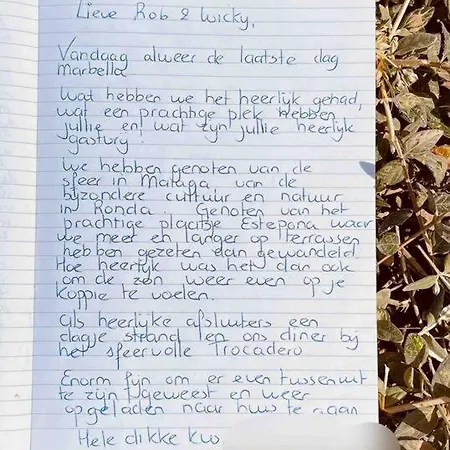 Lieve Rob & Wicky,
Vandaag alweer de laatste dag
Marbella
Wat hebben we het heerlijk gehad,
wat een prachtige plek hebben
jullie en wat zijn jullie heerlijk
gastvrij!
We hebben genoten van de
sfeer in Malaga van de
bijzondere cultuur en natuur
in Ronda. Genoten van het
prachtige plaatsje Estepona waar
we meer en langer op terrassen
hebben gezeten dan gewandeld.
Hoe heerlijk was het dan ook
om de zon weer even op je
koppie te voelen.
Als heerlijke afsluiters een
dagje strand en ons diner bij
het sfeervolle Trocadero
Enorm fijn om er even tussenuit
te zijn geweest en weer
opgeladen naar huis te gaan
Hele dikke kus